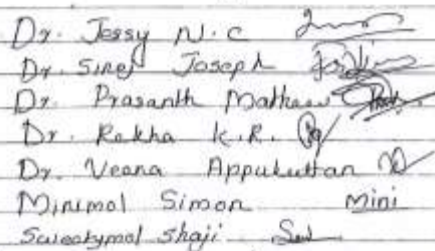 Dr. Jessy N.C
Dr. Sinej Joseph
Dr. Prasanth Mathew
Dr. Rekha K.R.
Dr. Veena Appukuttan
Minimol Simon Mini
Sweetymol Shaji